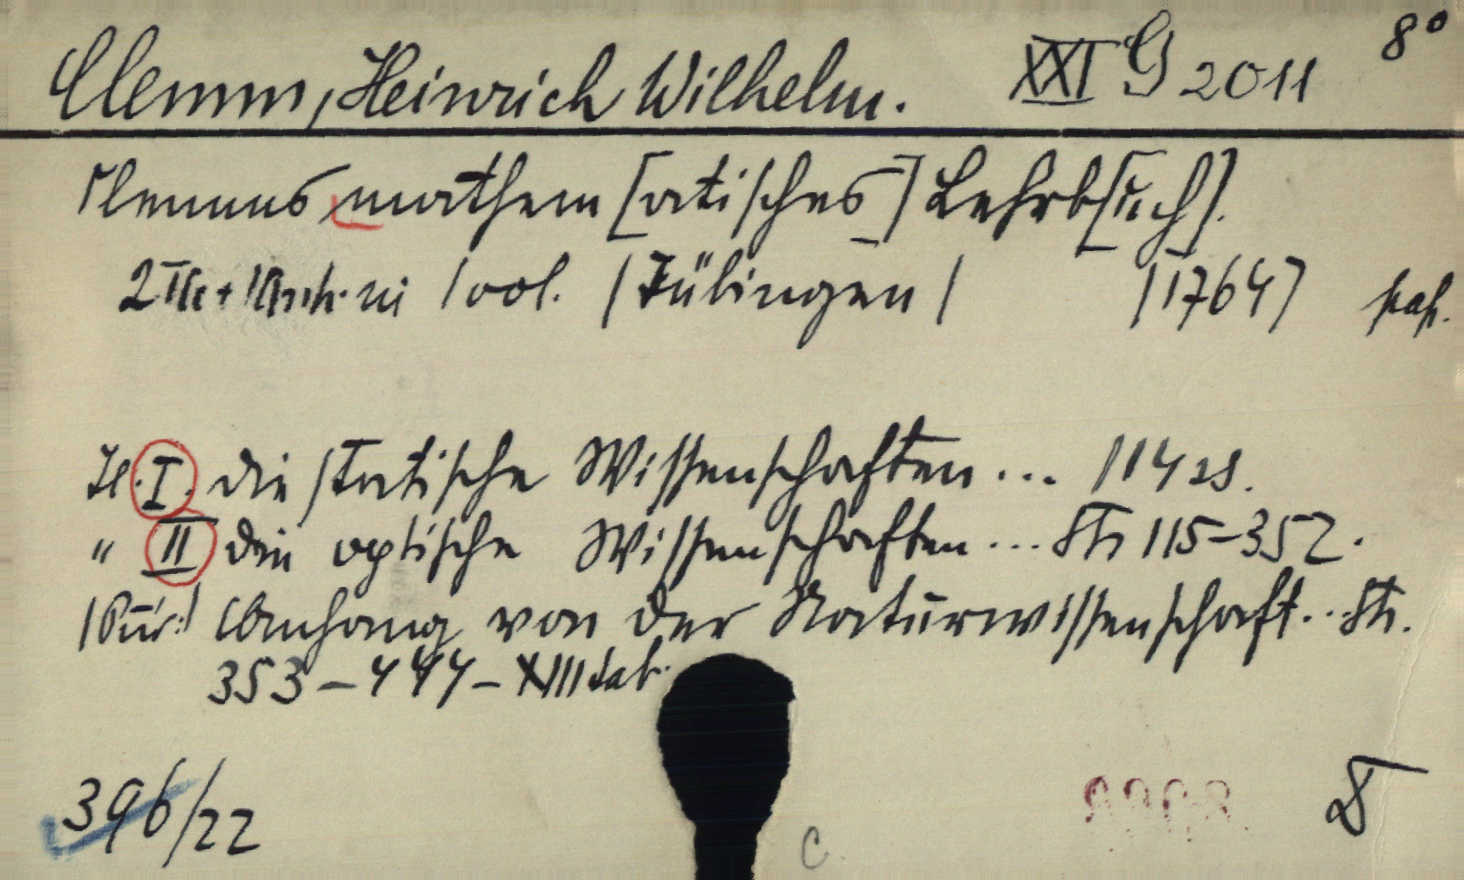 Clemm, Heinrich Wilhelm. XXI G 2011 8°
Klemms mathem[atisches] Lehrb[uch].
2 Tle + 1 Anh. in 1 vol. (Tübingen) (1764) pap.
Tl. I. die statische Wissenschaften ... 114 SS.
" II die optische Wissenschaften ... Stn 115-352.
Anhang von der Naturwissenschaft ... Stn.
353-444 - XIII tab.
396/22
C